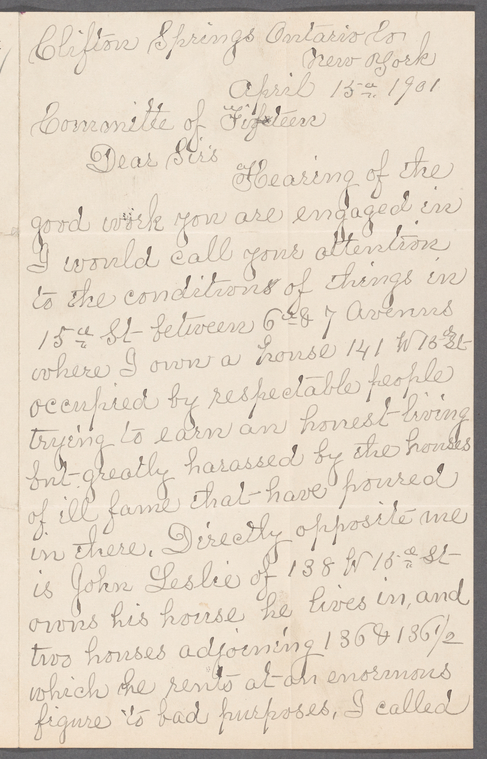 Clifton Springs Ontario Co.
New York
April 15th 1901
Committe of Fifteen
Dear Sir's
Hearing of the
good work you are engaged in
I would call your attention
to the conditions of things in
15th St between 6th & 7 Avenus
where I own a house 141 W 15th St
occupied by respectable people
trying to earn an honest living
but greatly harassed by the houses
of ill fame that have poured
in there. Directly opposite me
is John Leslie of 138 W 15th St
owns his house he lives in, and
two houses adjoining 136 & 136 1/2
which he rents at an enormous
figure to bad purposes. I called